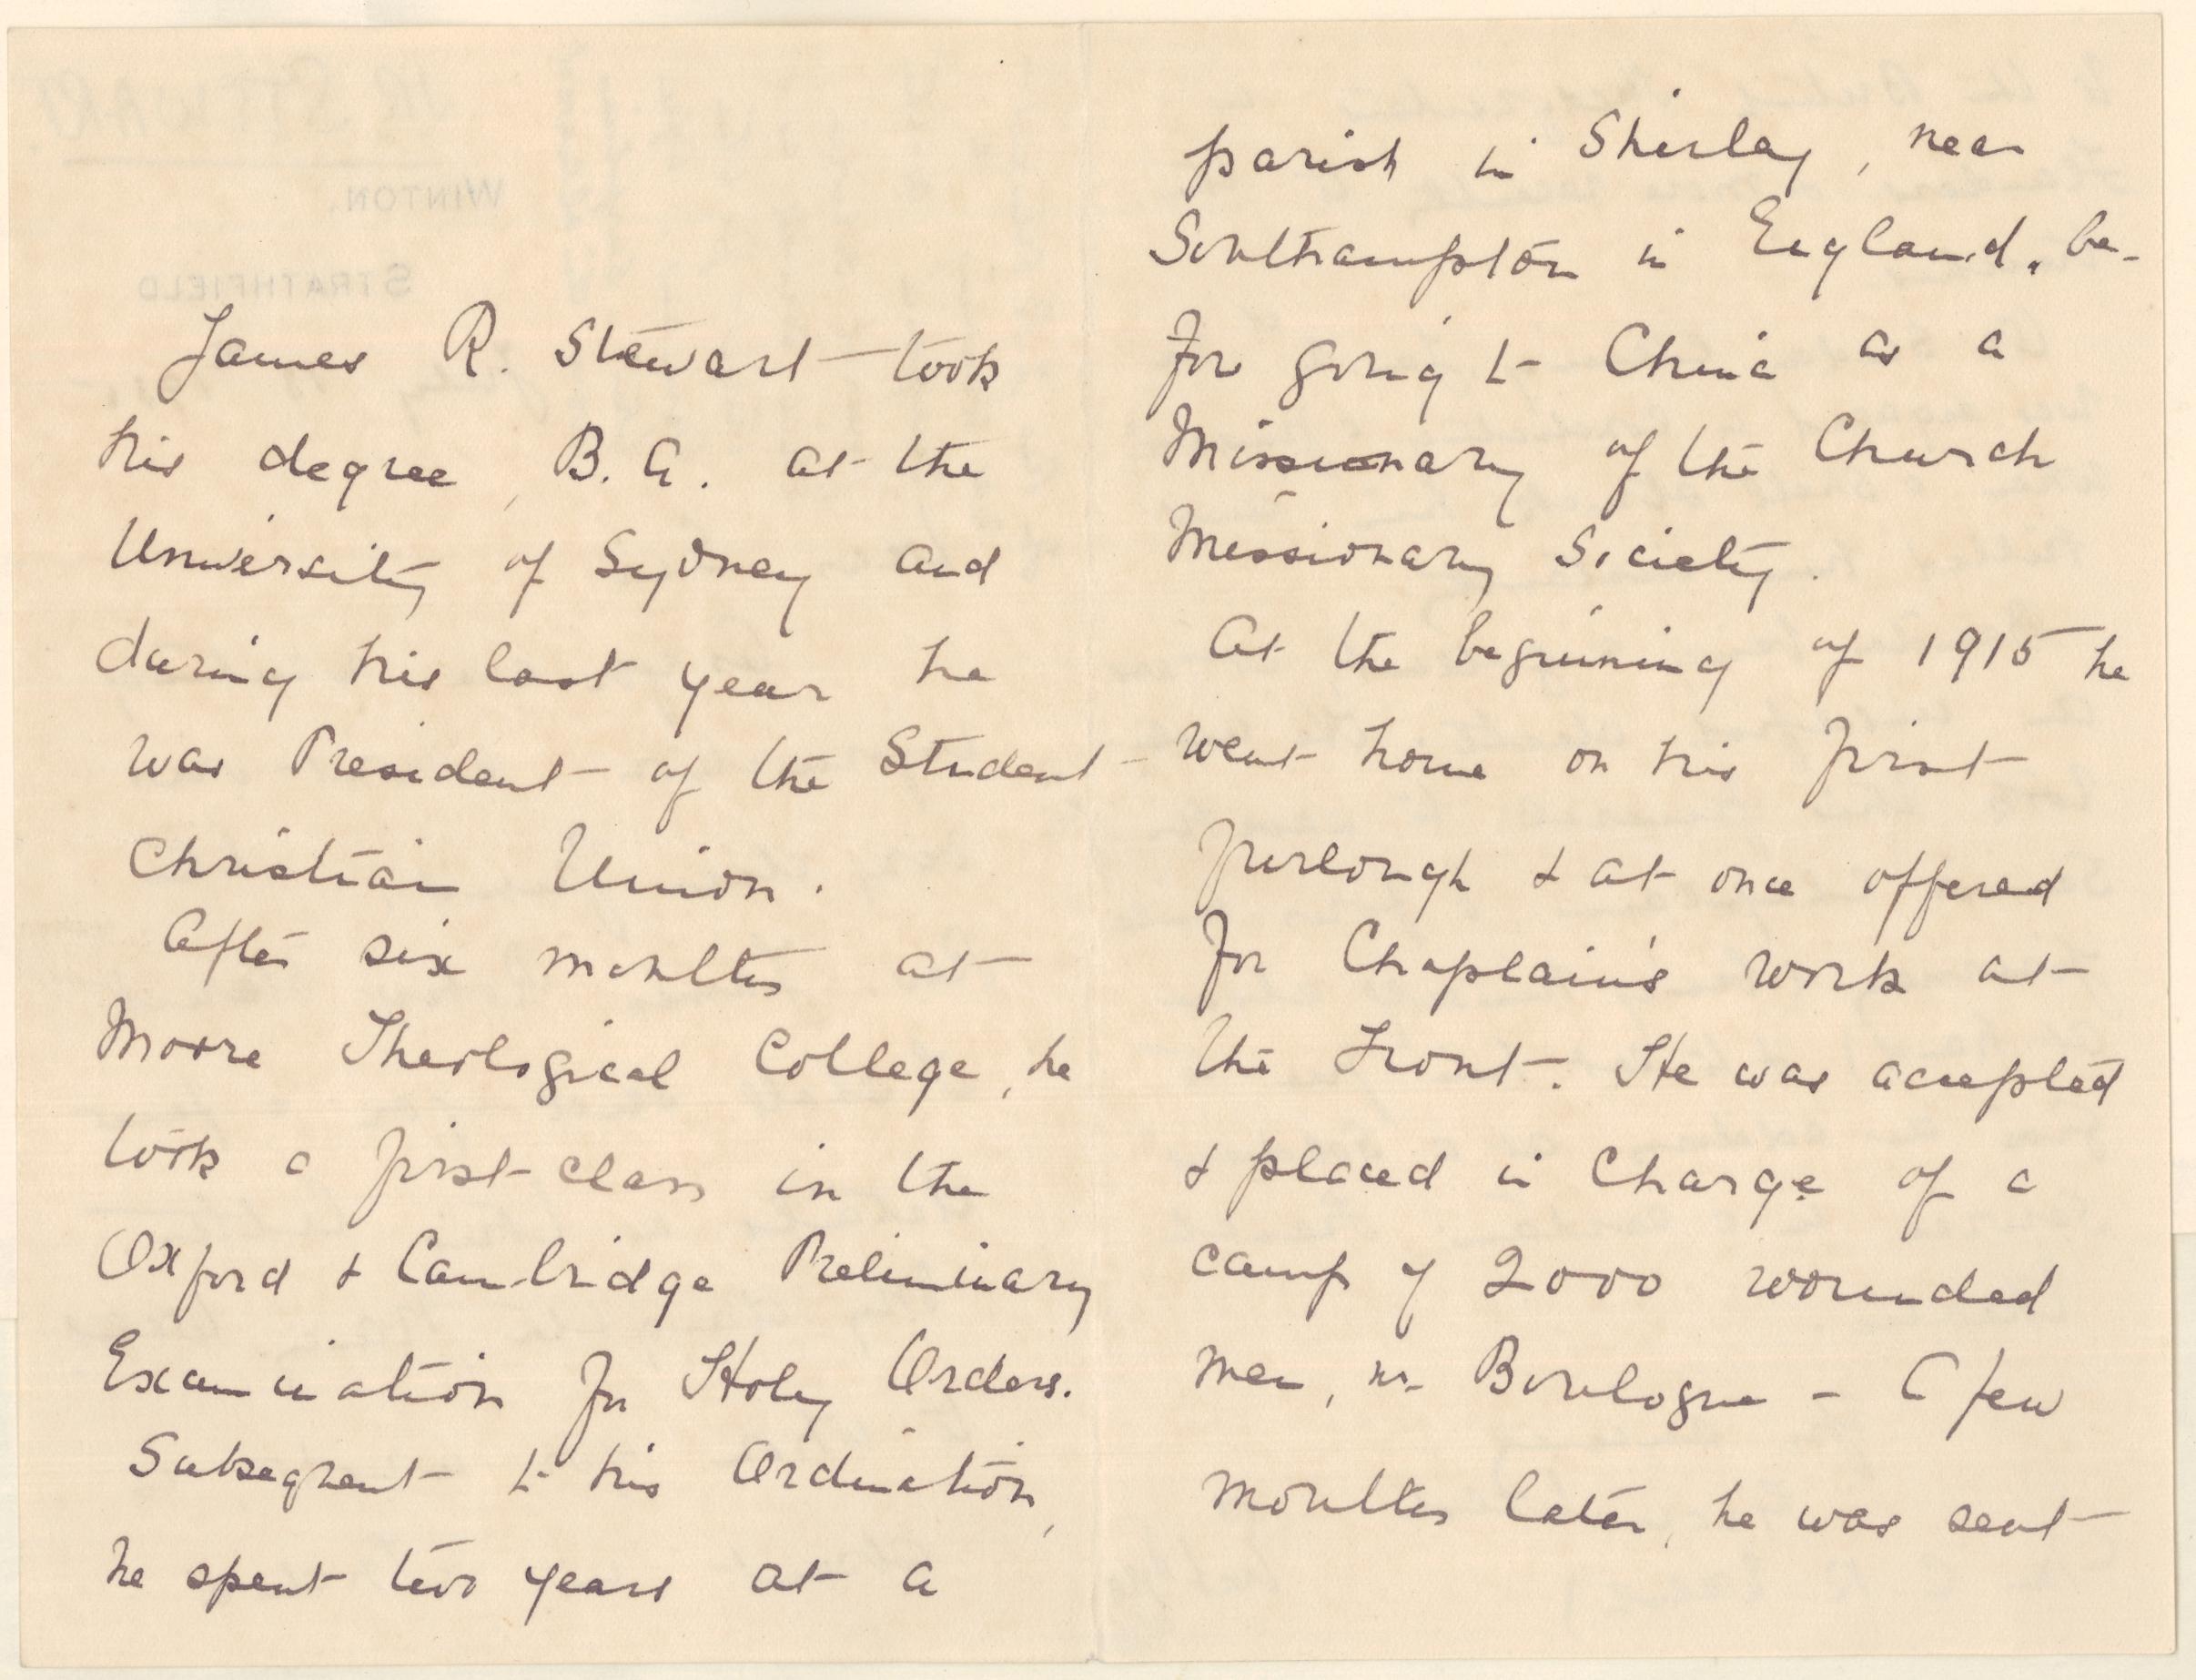 James R. Stewart took
his degree, B.A. at the
University of Sydney and
during his last year he
was President of the Student
Christian Union.
After six months at
Moore Theological College, he
took a first class in the
Oxford & Cambridge Preliminary
Examination for Holy Orders.
Subsequent to his Ordination,
he spent two years at a
parish in Shirley, near
Southampton in England, be-
fore going to China as a
Missionary of the Church
Missionary Society.
At the beginning of 1915 he
went home on his first
furlough & at once offered
for Chaplain's work at
the Front. He was accepted
& placed in charge of a
camp of 2000 wounded
men, nr Boulogne - A few
months later, he was sent
WINTON.
STRATHFIELD